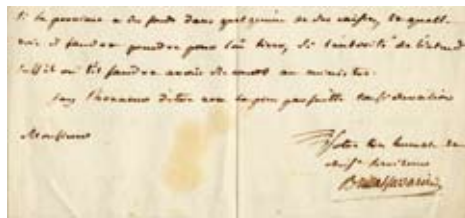 si la province a des fonds dans quelqu'une de ses caisses, de quelle
voie il faudra prendre pour l'en tirer, si l'autorité de l'intend
suffit ou s'il faudra avoir recours au ministre.
j'ay l'honneur d'etre avec la plus parfaite consideration
Monsieur
Votre tres humble et
obeist serviteur